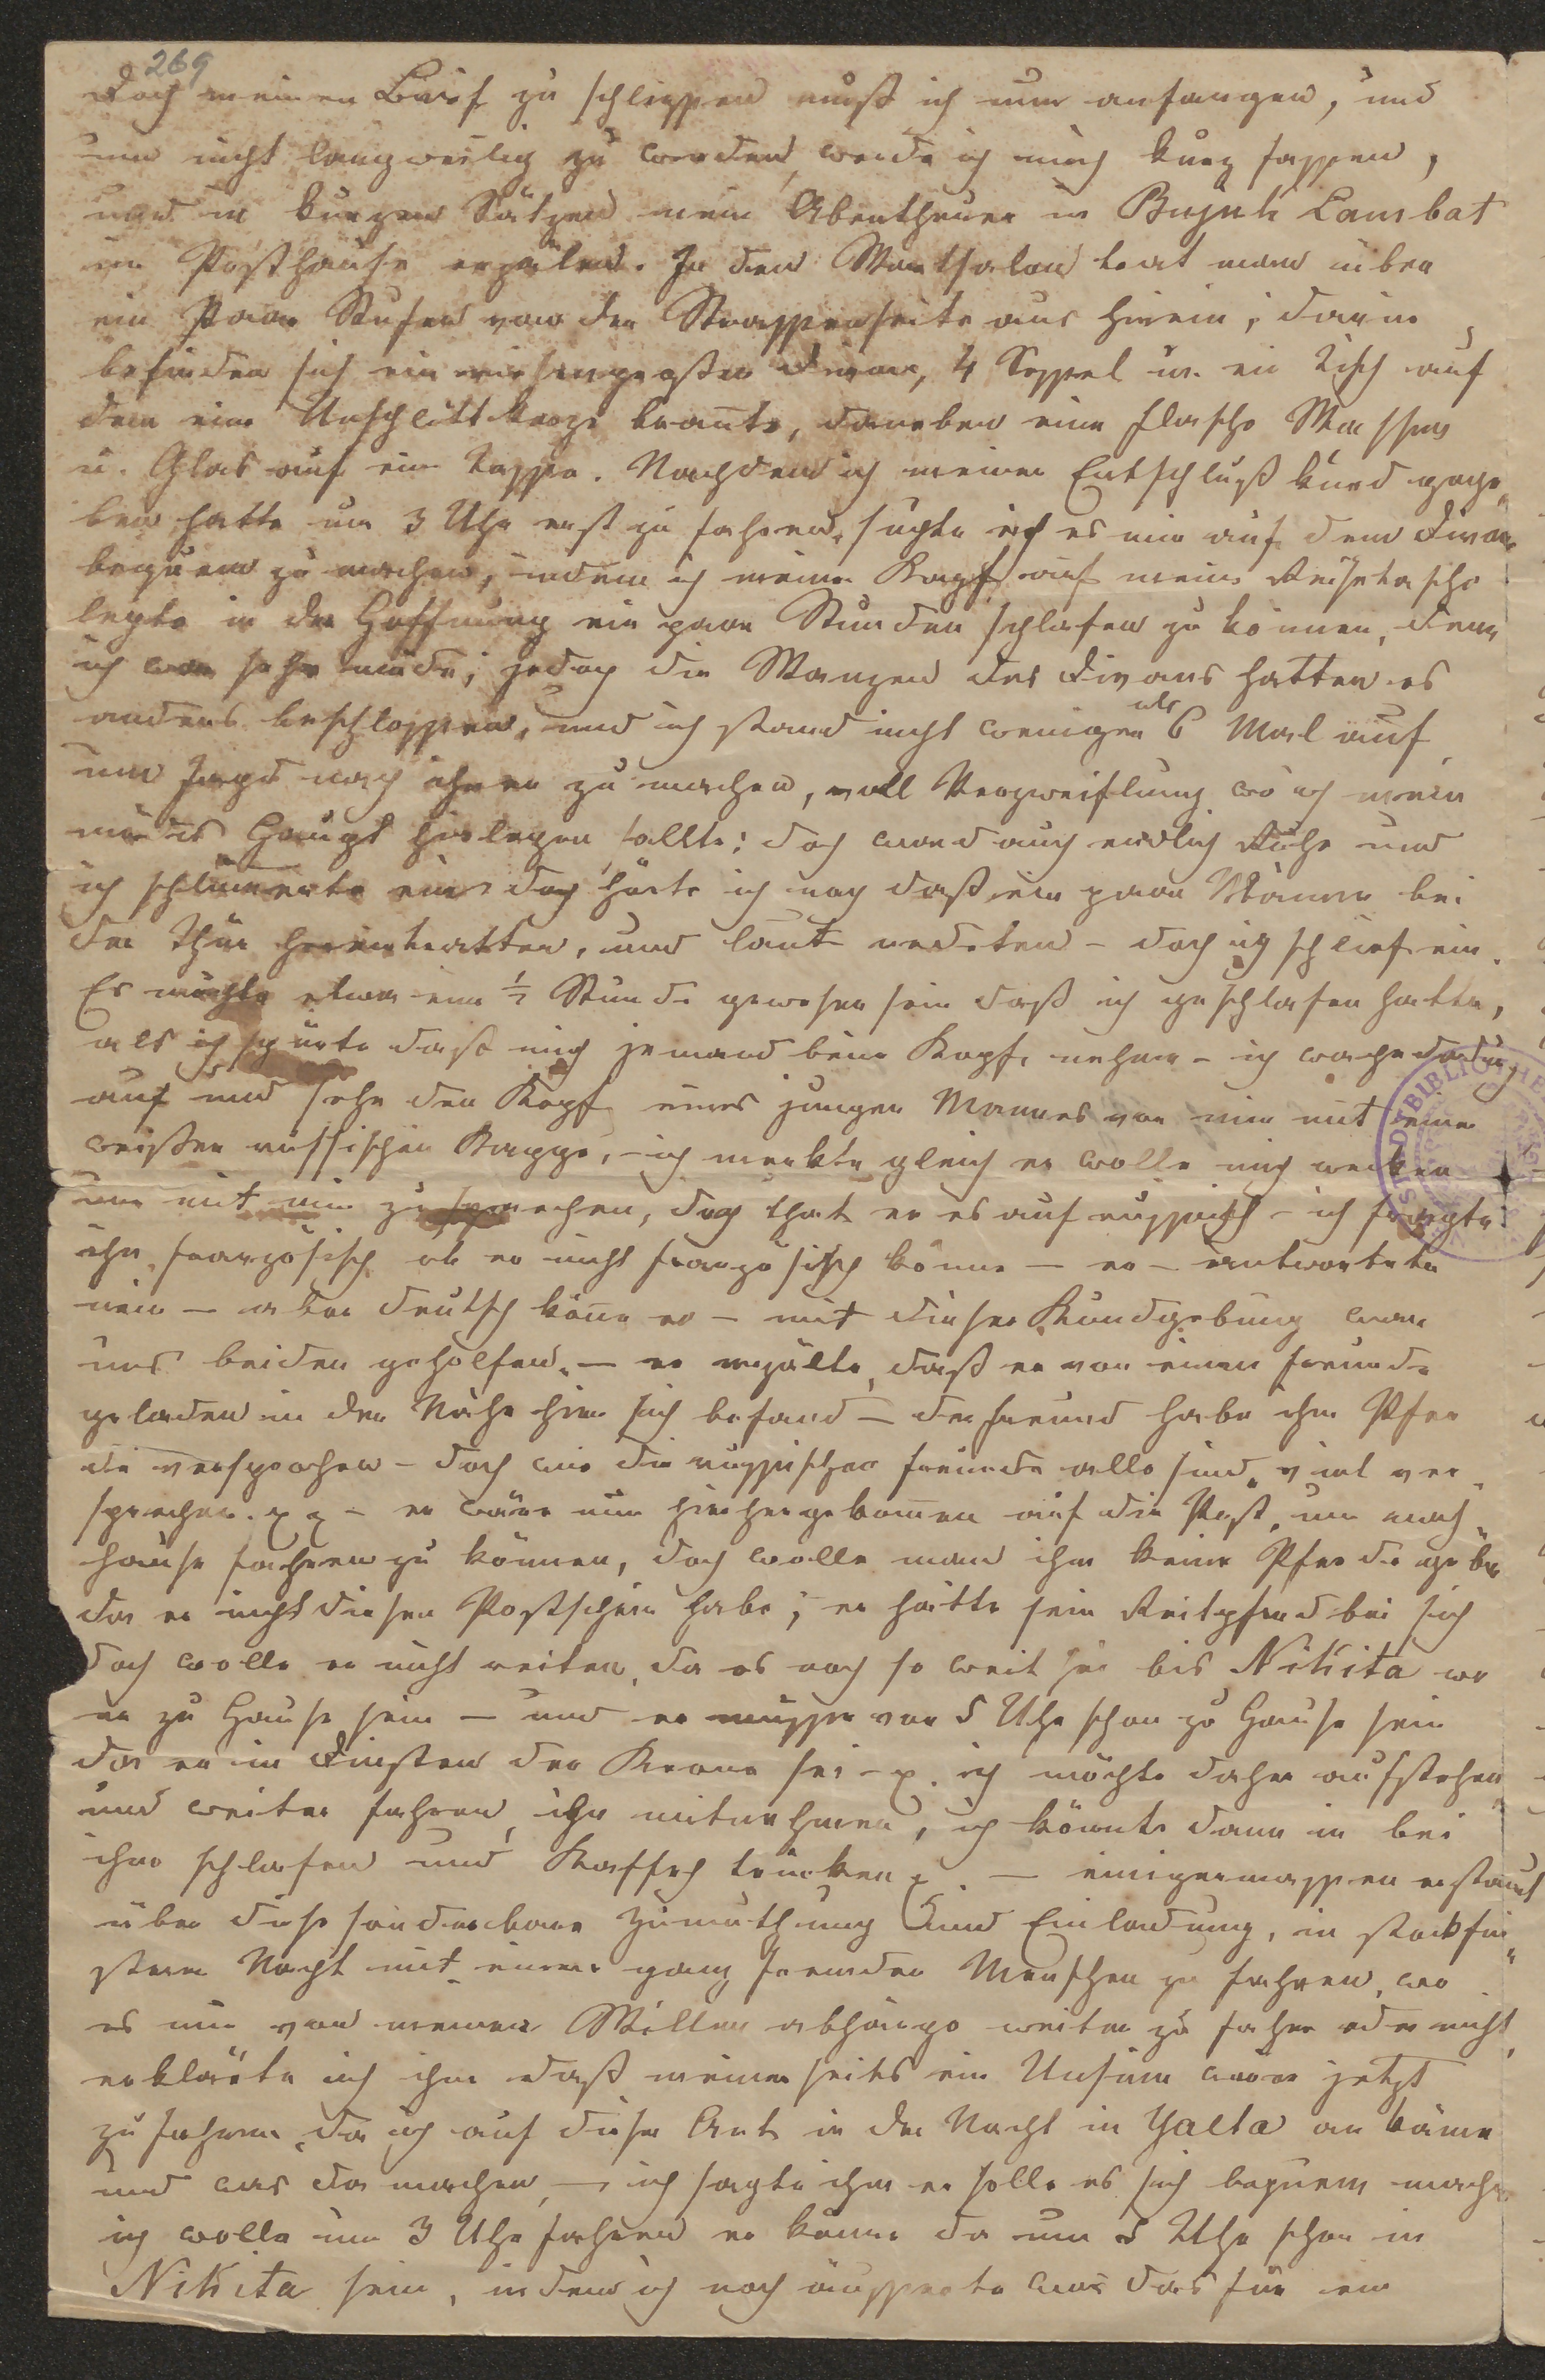 269
Doch meinen Brief zu schliessen muß ich nun anfangen, und
um nicht langweilig zu werden, werde ich mich kurz fassen,
und in kurzen Sätzen mein Abentheuer in Bujuk Lambat
im Posthause erzälen. In den Wartsalon trat man über
ein Paar Stufen von der Strassenseite aus hinein, darin
befinden sich ein riesengroßer Divan, 4 Sessel u. ein Tisch auf
dem eine Unschlittkerze brannte, daneben eine Flasche Wasser
u. Glas auf eine Tasse. Nachdem ich meinen Entschluß kund gege„
ben hatte um 3 Uhr erst zu fahren, suchte ich es mir auf dem Divan
bequem zu machen, indem ich meinen Kopf auf meine Reisetasche
legte in der Hoffnung ein paar Stunden schlafen zu können, denn
ich war sehr müde; jedoch die Wanzen des Divans hatten es
anders beschlossen, und ich stand nicht weniger als 6 Mal auf
um Jagd nach ihnen zu machen, voll Verzweiflung wo ich mein
müdes Haupt hinlegen sollte; doch ward auch endlich Ruhe und
ich schlumerte ein, doch hörte ich noch daß ein paar Männer bei
der Thür hereintratten, und laut redeten – doch ich schlief ein.
Es mochte etwa eine ½ Stunde gewesen sein daß ich geschlafen hatte,
als ich spürte daß mich jemand beim Kopfe nehme – ich wache dadurch
auf und sehe den Kopf eines jungen Mannes vor mir mit einer
weißen russischen Kappe, – ich merkte gleich er wolle mich wecken
um mit mir zu sprechen, doch that er es auf russisch – ich fragte
ihn französisch ob er nicht französisch könne – er – antwortete
nein – aber deutsch könne er – mit dieser Kundgebung war
uns beiden geholfen. – er erzälte, daß er von einem Freunde
geladen in der Nähe hier sich befand – der Freund habe ihm Pfer
de versprochen – doch wie die russischen Freunde alle sind, viel ver„
sprechen. x x – er wäre nun hierher gekommen auf die Post, um nach
hause fahren zu können, doch wolle man ihm keine Pferde geben
da er nicht diesen Postschein habe; er hätte sein Reitpferd bei sich
doch wolle er nicht reiten, da es noch so weit sei bis Nikita wo
er zu Hause sein – und er müsse vor 5 Uhr schon zu Hause sein
da er im Diensten der Krone sei – x. ich möchte daher aufstehen
und weiter fahren, ihn mitnehmen, ich könnte dann in bei
ihm schlafen und Kaffeh trinken x. – einigermassen erstaunt
über diese sonderbare Zumuthung und Einladung, in stockfin„
sterer Nacht mit einem ganz fremden Menschen zu fahren, wo
es nur von meinem Willen abhänge weiter zu fahren oder nicht,
erklärte ich ihm daß meinerseits ein Unsinn wäre jetzt
zu fahren, da ich auf diese Art in der Nacht in Yalta an käme
und was da machen, – ich sagte ihm er solle es sich bequem machen
ich wolle um 3 Uhr fahren er könne da um 5 Uhr schon in
Nikita sein, indem ich noch äusserte was das für ein
STADTBIBLIOTHEK